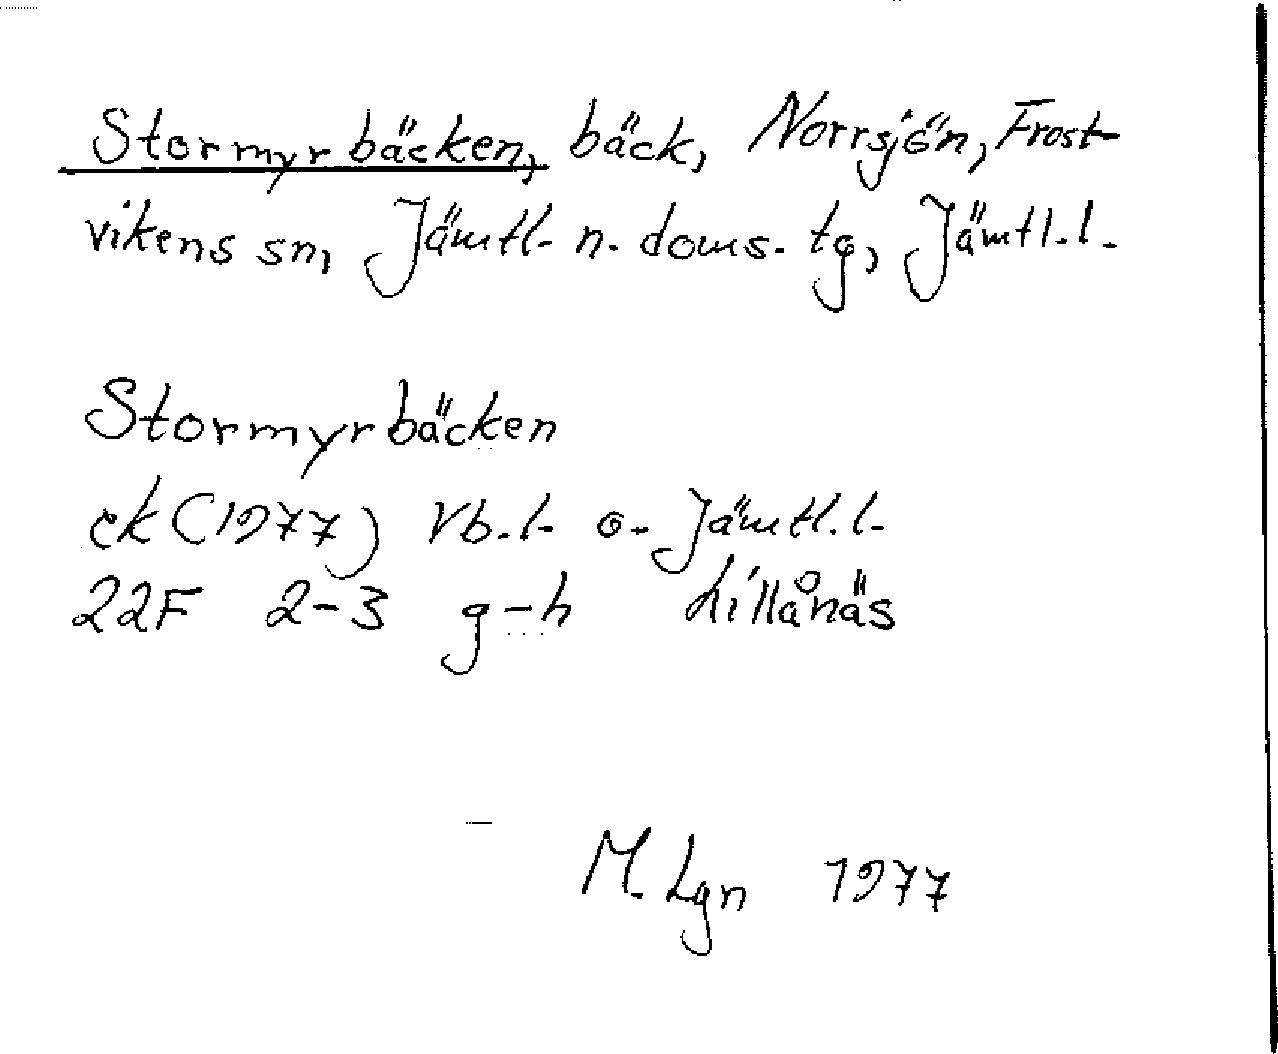 Stormyrbäcken, bäck, Norrsjön, Frost-
vikens sn, Jämtl. n. doms. tg, Jämtl. l.
Stormyrbäcken
ek (1977) Vb. l. o. Jämtl. l.
22F 2-3 g-h Lillånäs
M. Lgn 1977